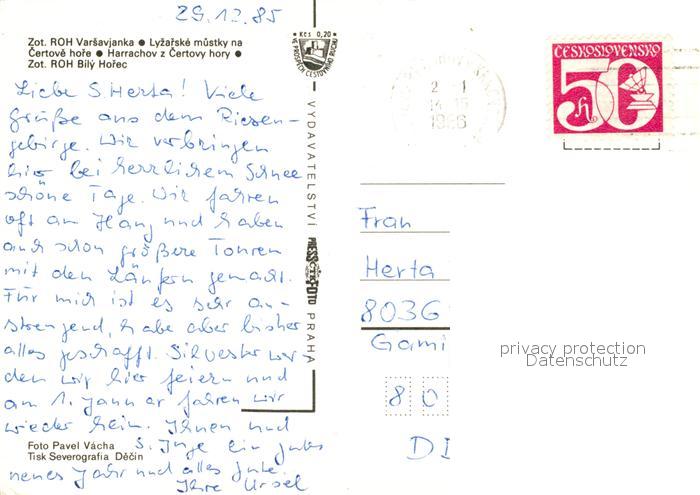 29.12.85
Zot. ROH Varšavjanka ● Lyžařské můstky na
Čertově hoře ● Harrachov z Čertovy hory ●
Zot. ROH Bílý Hořec
Kčs 0,20
VE PROSPĚCH CESTOVNÍHO RUCHU
Liebe S. Herta! Viele
Grüße aus dem Riesen-
gebirge. Wir verbringen
hier bei herrlichem Schnee
schöne Tage. Wir fahren
oft am Hang und haben
auch schon größere Touren
mit den Läufern gemacht.
Für mich ist es sehr an-
strengend, habe aber bisher
alles geschafft. Silvester wer-
den wir hier feiern und
am 1. Januar fahren wir
wieder heim. Ihnen und
S. Inge ein gutes
neues Jahr und alles Gute
Ihre Ursel
Foto Pavel Vácha
Tisk Severografia Děčín
VYDAVATELSTVÍ
PRESSFOTO
ČTK
PRAHA
2 1
1986
ČESKOSLOVENSKO
50 h
Frau
Herta
8036
Gami
80
DD
privacy protection
Datenschutz